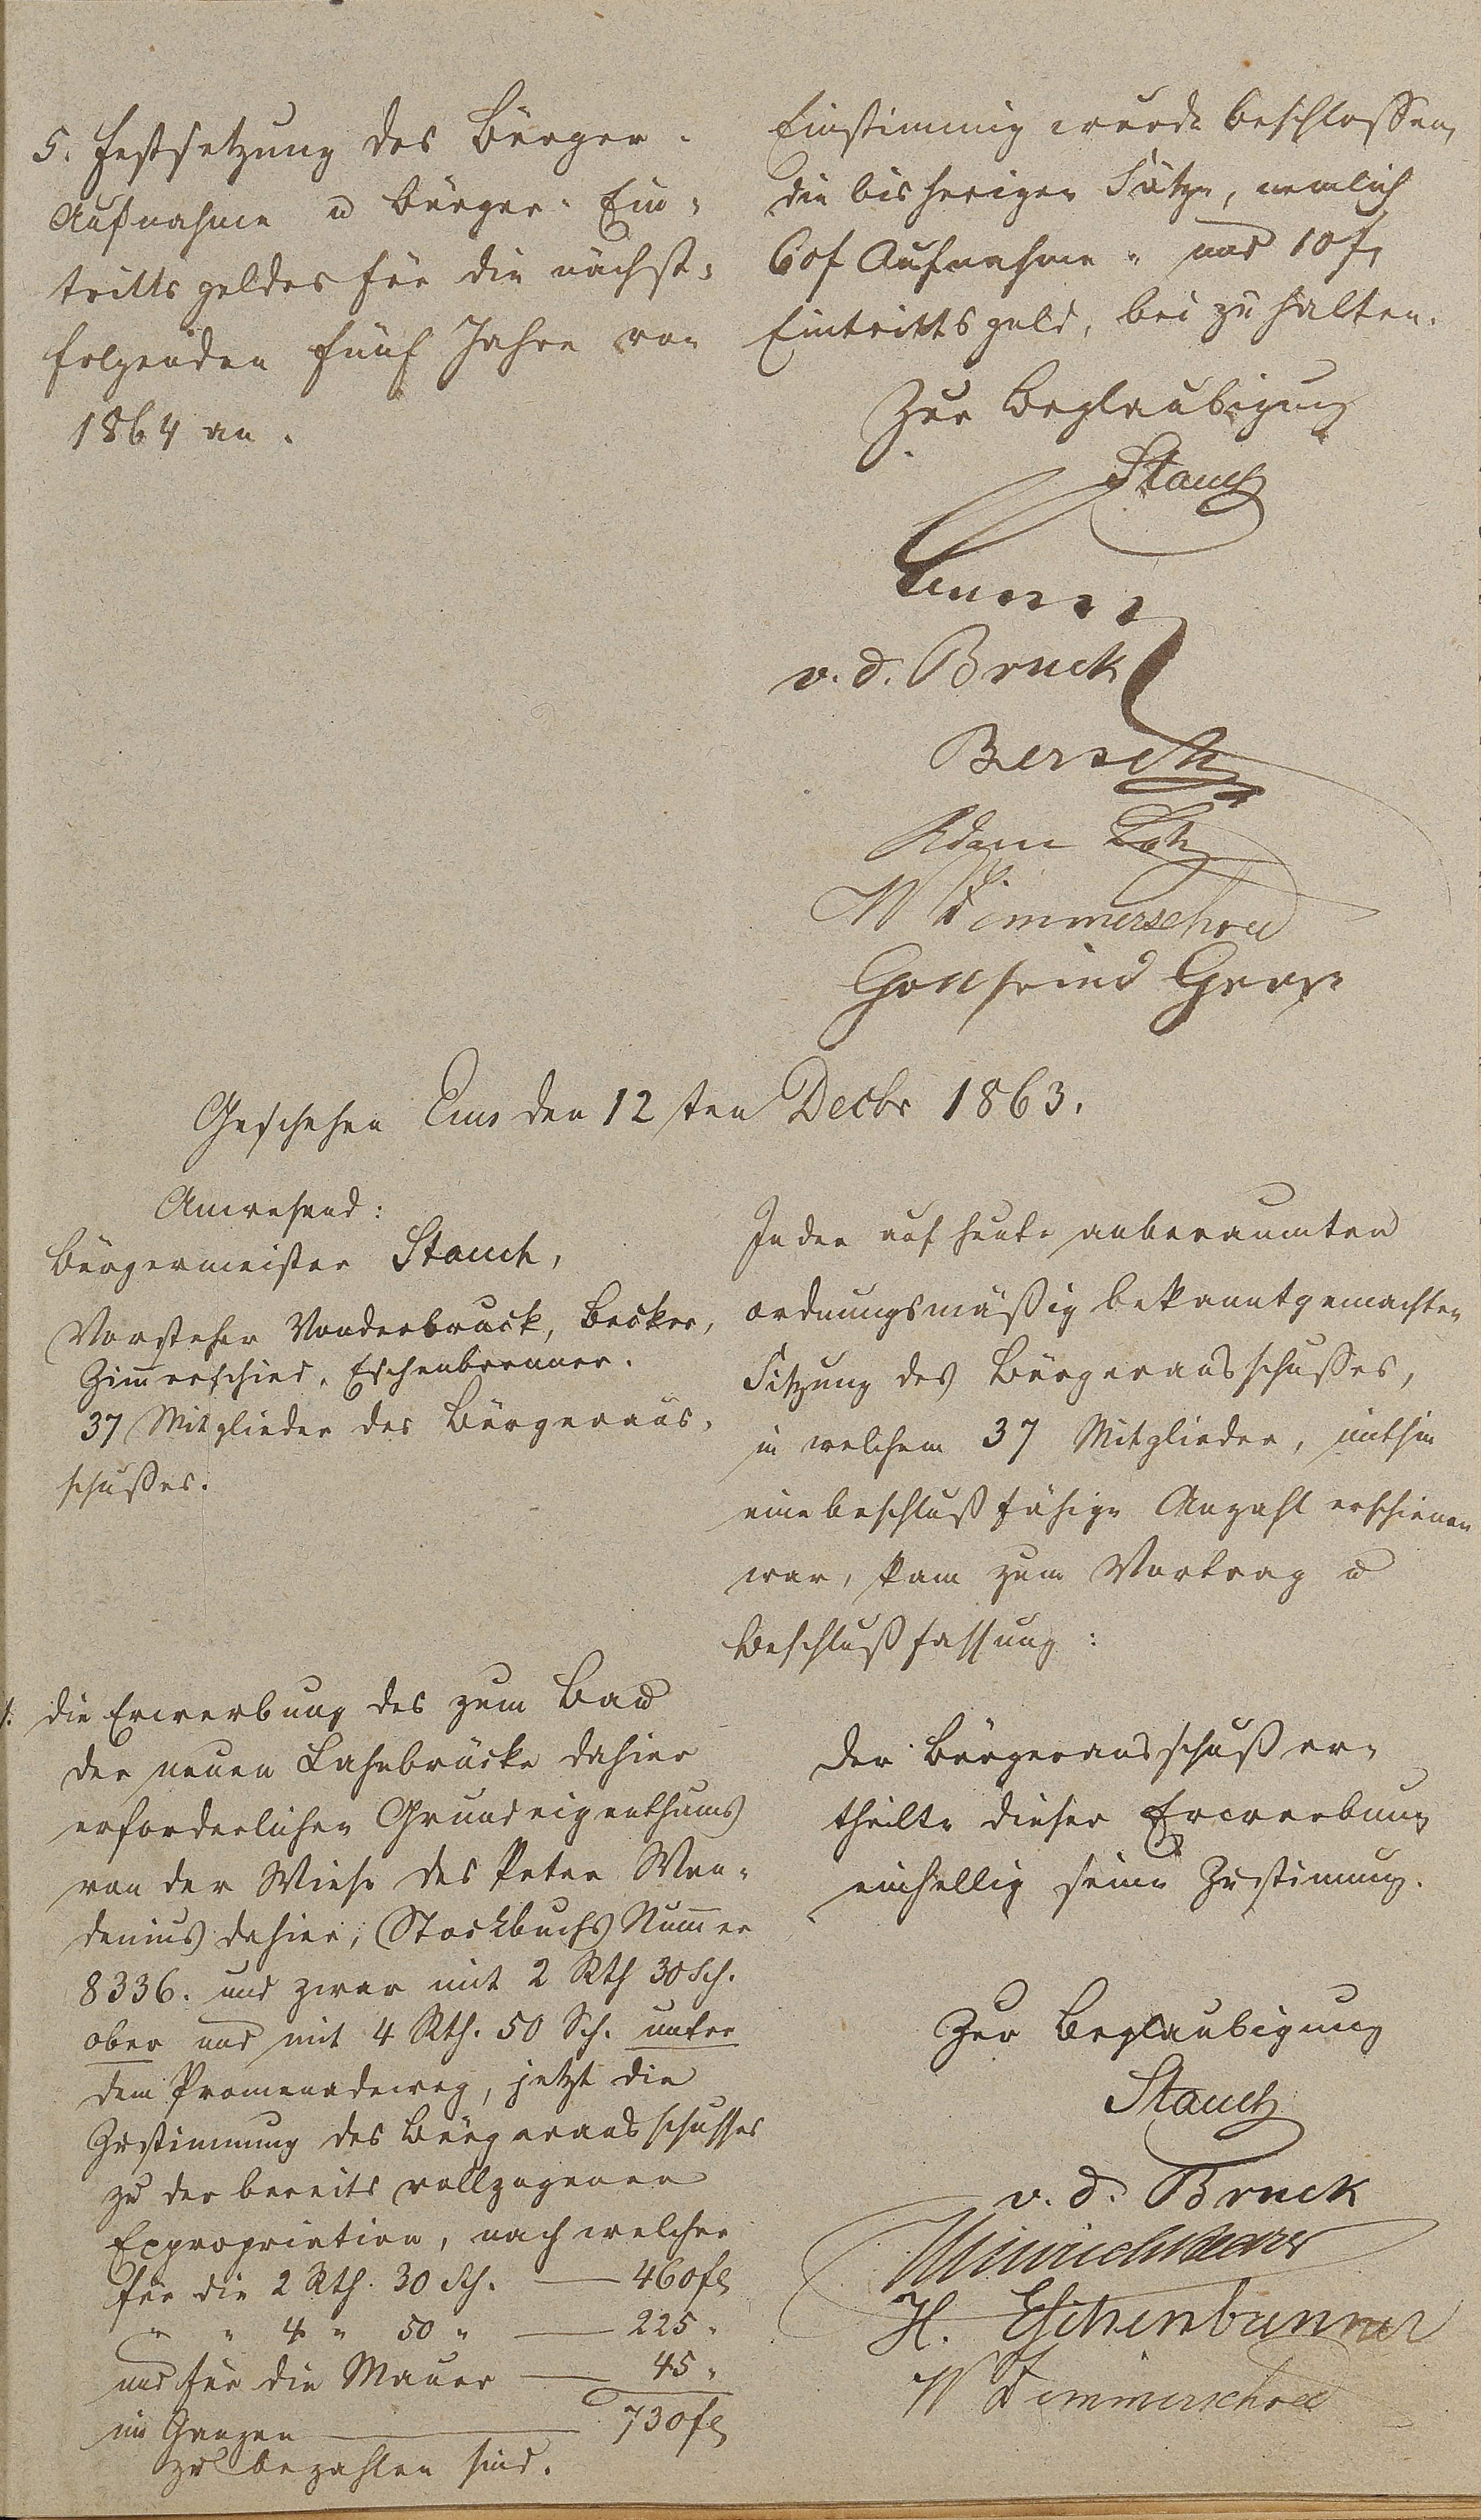 5. Festsetzung des Bürger-
Aufnahme u Bürger-Ein-
trittsgeldes für die nächst-
folgenden fünf Jahre von
1864 an.
Einstimmig wurde beschlossen,
die bisherigen Sätze, nemlich
60f Aufnahme- und 10f
Eintrittsgeld, bei zu halten.
Zur Beglaubigung
Stauch
v. d. Bruck
Bersch
Adam
W Zimmerschied
Gottfried
Geschehen Ems den 12ten Decbr 1863.
Anwesend:
Bürgermeister Stauch,
Vorsteher Vonderbruck, Becker,
Zimerschied, Eschenbrenner.
37 Mitglieder des Bürgeraus-
schußes.
In der auf heute anberaumten
ordnungsmäßig bekanntgemachten
Sitzung des Bürgerausschußes,
in welchem 37 Mitglieder, mithin
eine beschlußfähige Anzahl erschienen
war, kam zum Vortrag u
Beschlußfassung:
1. die Erwerbung des zum Bau
der neuen Lahnbrücke dahier
erforderlichen Grundeigenthums
von der Wiese des Peter Wen-
denius dahier, Stockbuchs Numer
8336. und zwar mit 2 Rth 30 Sch.
ober und mit 4 Rth. 50 Sch. unter
dem Promenadeweg, jetzt die
Zustimmung des Bürgerausschusses
zu der bereits vollzogenen
Expropriation, nach welcher
für die 2 Rth. 30 Sch. — 460 fl
" " 4 " 50 " — 225 "
und für die Mauer — 45 "
im Ganzen — 730 fl
zu bezahlen sind.
Der Bürgerausschuß er-
theilte dieser Erwerbung
einhellig seine Zustimung.
Zur Beglaubigung
Stauch
v. d. Bruck
H. Eschenbrenner
W Zimmerschied